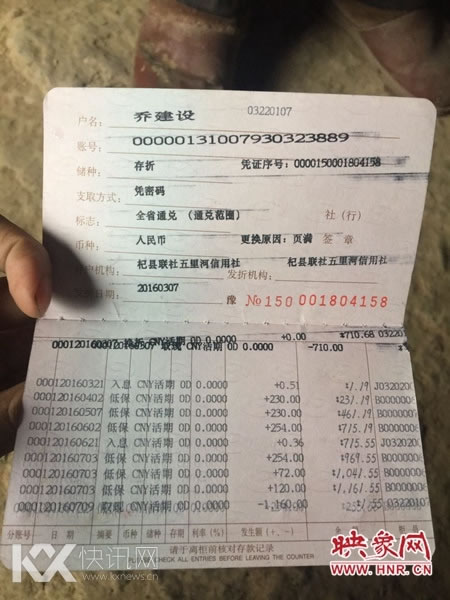 户名： 乔建设 03220107
账号： 00000131007930323889
储种： 存折 凭证序号：0000150001804158
支取方式： 凭密码
标志： 全省通兑 （通兑范围） 社（行）
币种： 人民币 更换原因：页满 签 章
机构： 杞县联社五里河信用社 发折机构： 杞县联社五里河信用社
20160307 豫 №150 001804158
+0.00
CNY活期 0D 0.0000 -710.00
000120160321 入息 CNY活期 0D 0.0000 +0.51 *1.19
000120160402 低保 CNY活期 0D 0.0000 +230.00 *231.19
000120160507 低保 CNY活期 0D 0.0000 +230.00 *461.19
000120160602 低保 CNY活期 0D 0.0000 +254.00 *715.19
000120160621 入息 CNY活期 0D 0.0000 +0.36 *715.55
000120160703 低保 CNY活期 0D 0.0000 +254.00 *969.55
000120160703 低保 CNY活期 0D 0.0000 +72.00 *1,041.55
000120160703 低保 CNY活期 0D 0.0000 +120.00 *1,161.55
000120160709 CNY活期 0D 0.0000 -1,160.00
分账号 日 期 摘要 币种 储种 存期 利率（%） 发生额（+、-） 余
请于离柜前核对存款记录
CHECK ALL ENTRIES BEFORE LEAVING THE COUNTER.
KX快讯网
www.kxnews.cn
映象网
WWW.HNR.CN